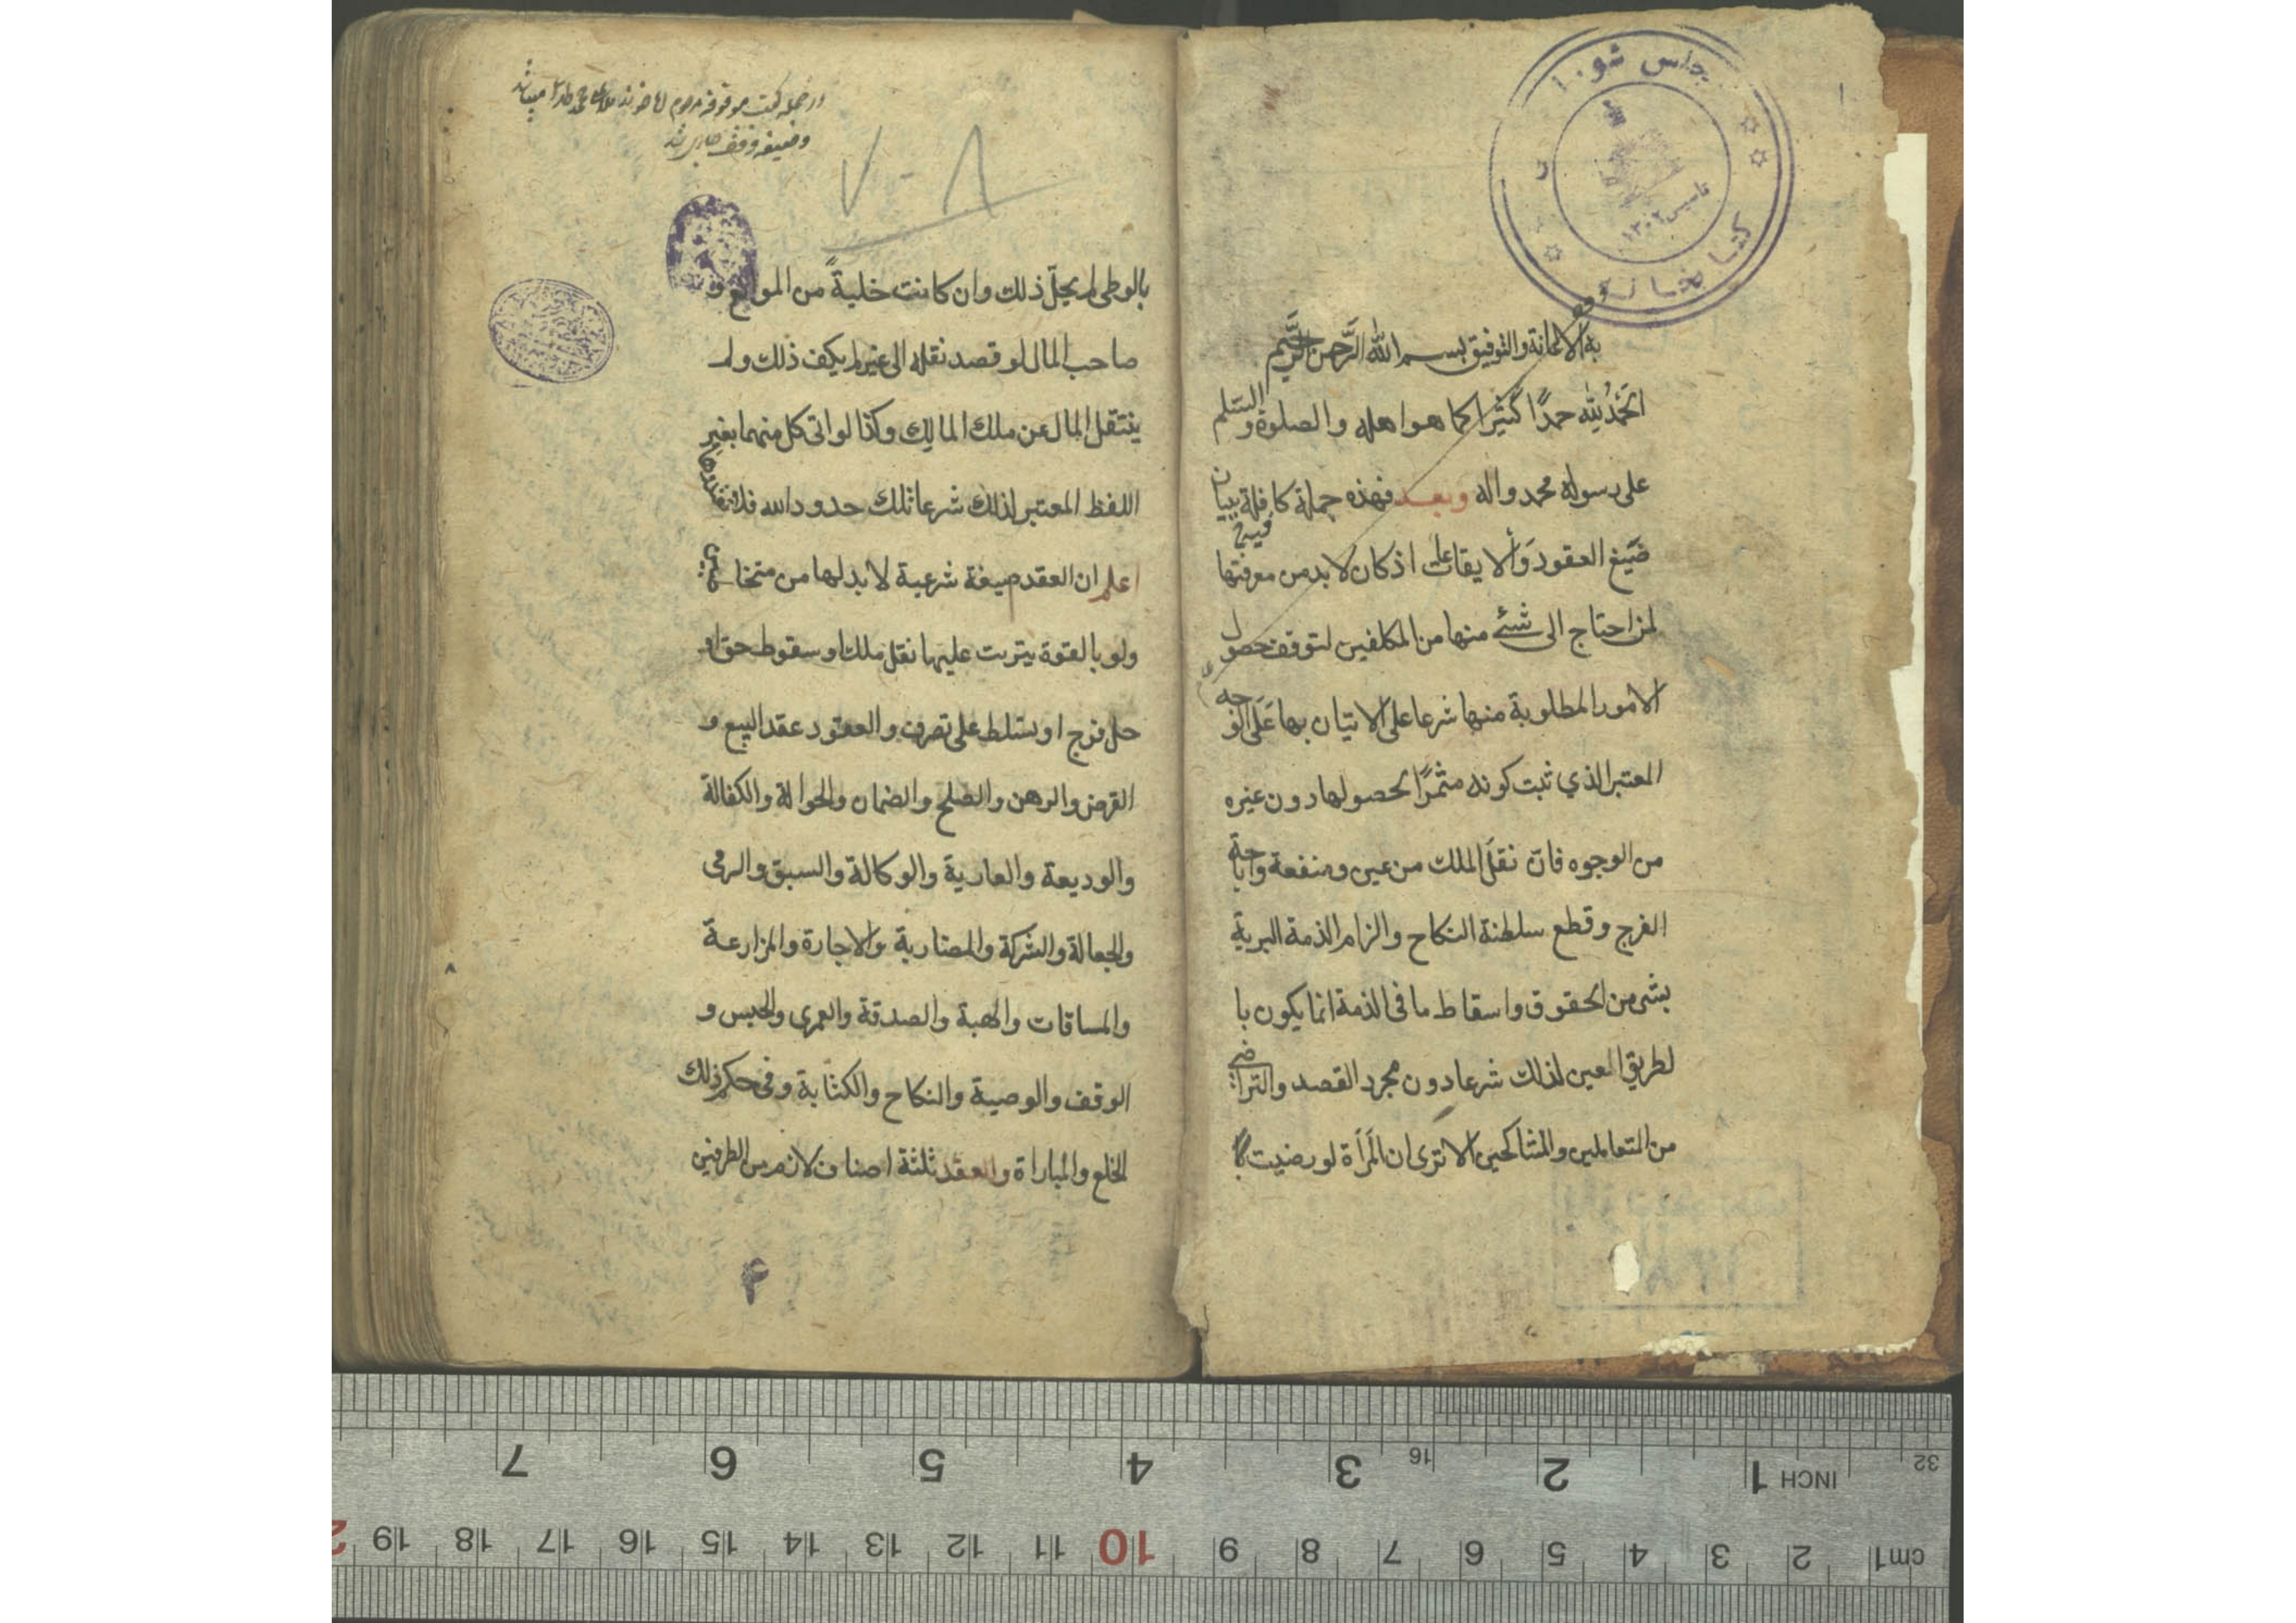 مجلس شورا
کتابخانه
تاسیس ۱۳۰۲
به الاعانة والتوفيق بسم الله الرَّحمن الرَّحيم
الحَمْدُ لله حمدًا كثيرًا كما هو اهله والصلوة والسّلم
على رسوله محمد واله وبعد فهذه جملة كافلة ببيان
صَيغ العقود وَألايقاعات اذ كان لا بد من معرفتها
لمن احتاج الى شئ منها من المكلفين لتوقف حصول
الامور المطلوبة منها شرعا على الاتيان بها عَلَى الوجه
المعتبر الذي ثبت كونه مثمرًا لحصولها دون غيره
من الوجوه فان نقلَ الملك من عين ومنفعة واباحة
الفرج وقطع سلطنة النكاح والزام الذمة البرية
بشى من الحقوق واسقاط ما فى الذمة انما يكون با
لطريق المعين لذلك شرعا دون مجرد القصد والتراضي
من المتعاملين والمتناكحين الا ترى ان المَرأة لو رضيت
در جمله کتب موقوفه مرحوم
۷-۸
بالوطى لم يحلّ ذلك وان كانت خليةً من الموانع و
صاحب المال لو قصد نقله الى غيره لم يكف ذلك ولم
ينتقل المال عن ملك المالك وكذا لو اتى كل منهما بغير
اللفظ المعتبر لذلك شرعا تلك حدود الله فلا تعتدوها
اعلم ان العقد صيغة شرعية لا بد لها من متخاطبين
ولو بالقوة يترتب عليها نقل ملك او سقوط حق او
حل فرج او تسلط على تصرف والعقود عقد البيع و
القرض والرهن والصلح والضمان والحوالة والكفالة
والوديعة والعارية والوكالة والسبق والرمى
والجعالة والشركة والمضاربة والاجارة والمزارعة
والمساقات والهبة والصدقة والعمرى والحبس و
الوقف والوصية والنكاح والكتابة وفى حكم ذلك
الخلع والمباراة والعقد ثلثة اصناف لازم من الطرفين
7 6 5 4 3 16 2 1 INCH 32
19 18 17 16 15 14 13 12 11 10 9 8 7 6 5 4 3 2 1 cm